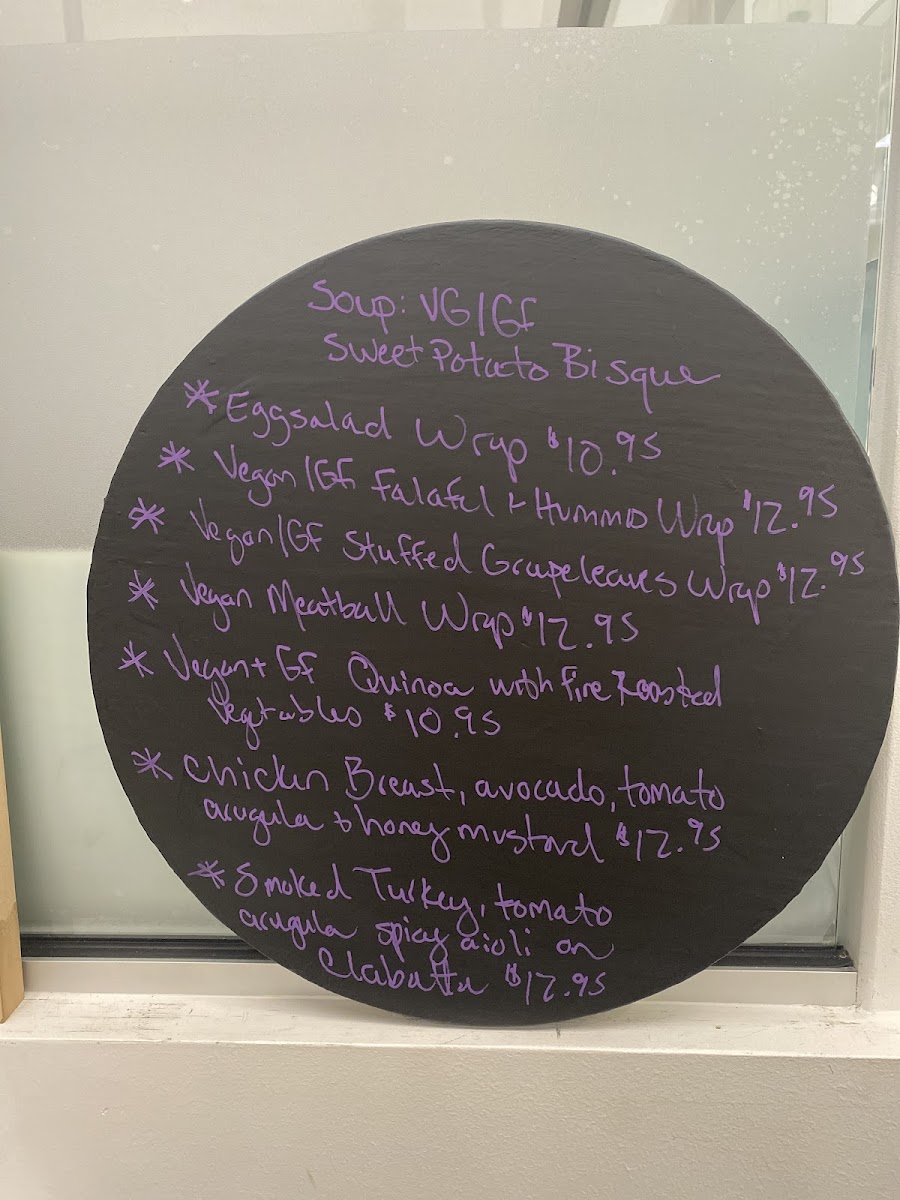 Soup: VG/GF
Sweet Potato Bisque
* Eggsalad Wrap $10.95
* Vegan/GF Falafel + Hummus Wrap $12.95
* Vegan/GF Stuffed Grapeleaves Wrap $12.95
* Vegan Meatball Wrap $12.95
* Vegan + GF Quinoa with Fire Roasted
Vegetables $10.95
* Chicken Breast, avocado, tomato
arugula + honey mustard $12.95
* Smoked Turkey, tomato
arugula spicy aioli on
Ciabatta $12.95